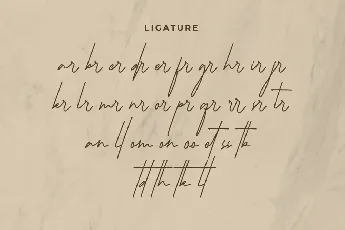 LIGATURE
ar br cr dr er fr gr hr ir jr
kr lr mr nr or pr qr rr sr tr
an ll om on oo of ss tb
td th tk tl